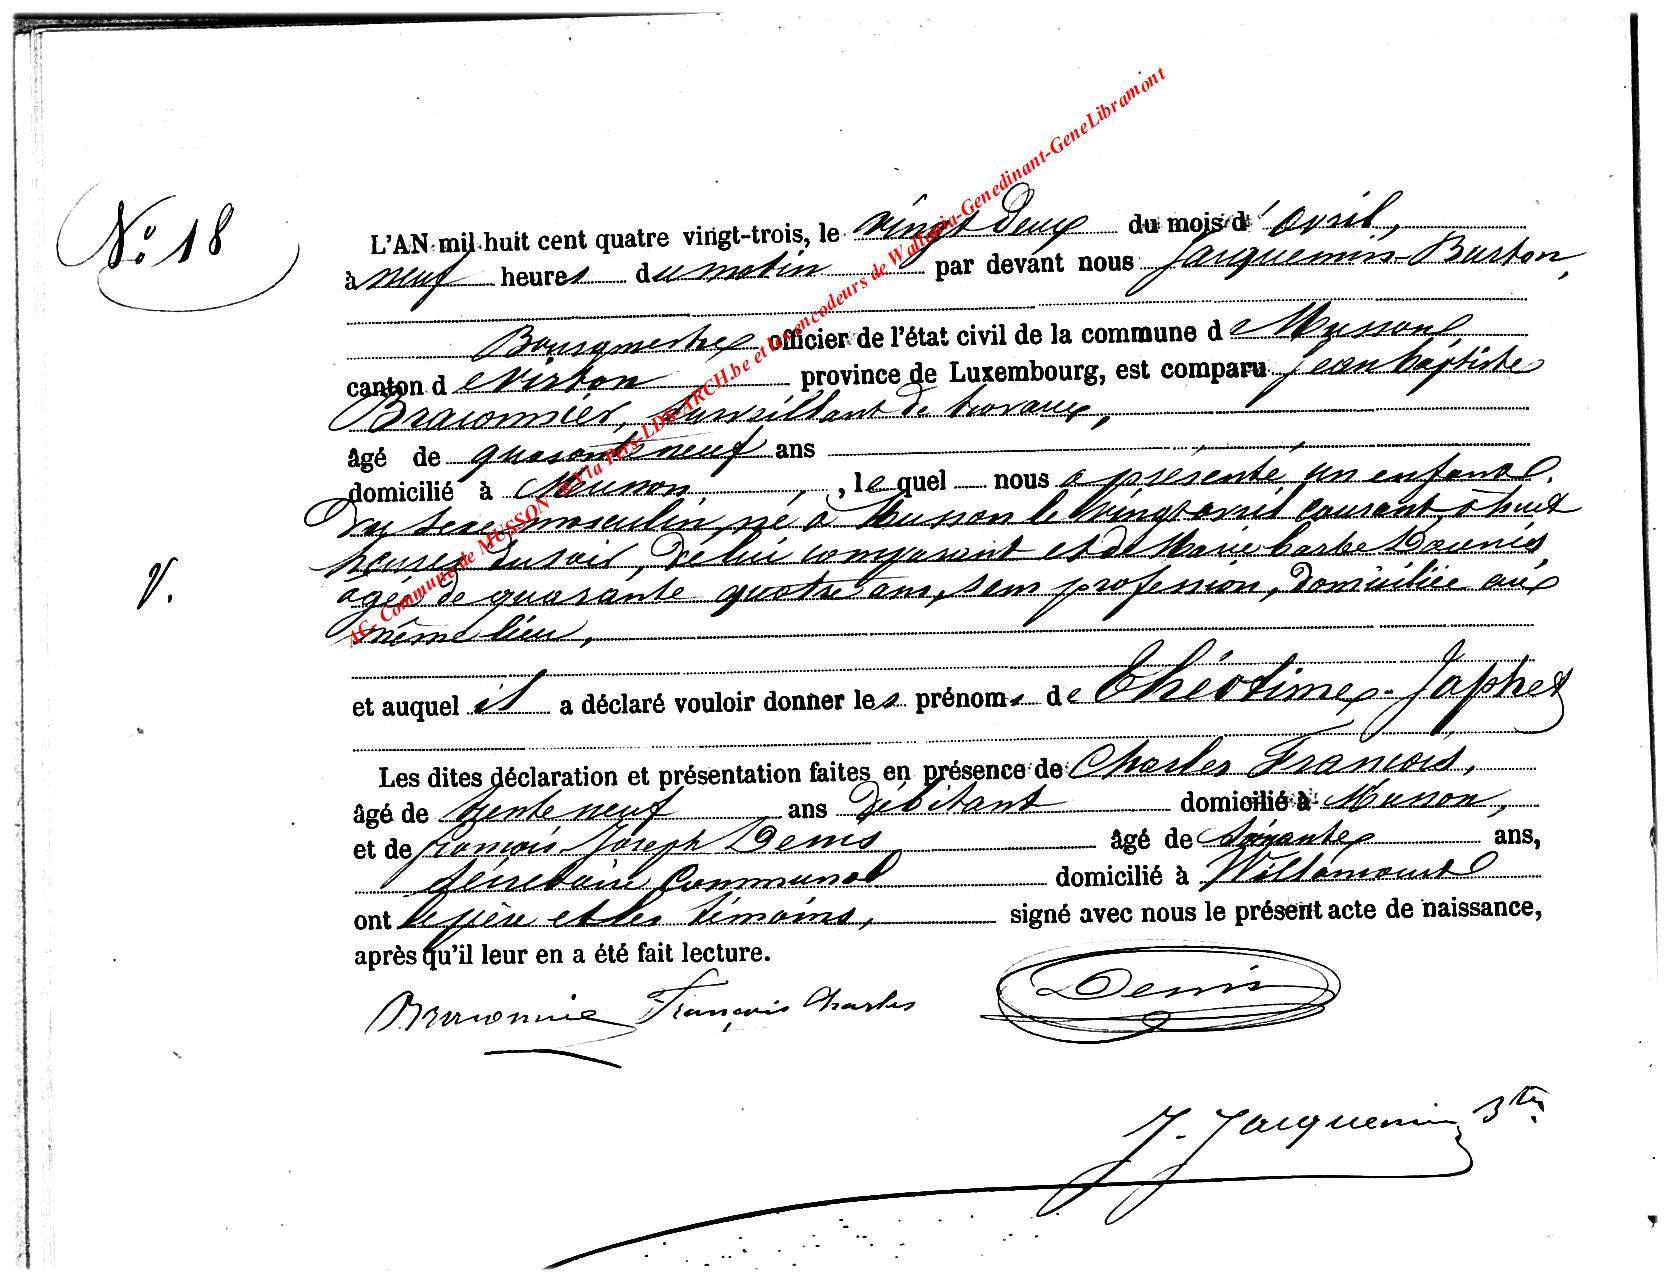 No. 18
L'AN mil huit cent quatre vingt-trois, le vingt Deux du mois d'avril,
à neuf heures du matin par devant nous Jacquemin-Burton,
Bourgmestre officier de l'état civil de la commune de Musson,
canton de Virton province de Luxembourg, est comparu Jean baptiste
Braconnier, surveillant de travaux,
âgé de quarante neuf ans
domicilié à Musson, le quel nous a présenté un enfant
Du sexe masculin, né à Musson le vingt avril courant, à huit
heures du soir, de lui comparant et de Marie barbe
âgée de quarante quatre ans, sans profession, domiciliée au
même lieu,
et auquel il a déclaré vouloir donner les prénoms de Théotime-Japhet
Les dites déclaration et présentation faites en présence de Charles François,
âgé de trente neuf ans Débitant domicilié à Musson,
et de françois Joseph Denis âgé de ans,
secrétaire communal domicilié à Willancourt
ont le père et les témoins, signé avec nous le présent acte de naissance,
après qu'il leur en a été fait lecture.
V.
Braconnier François Charles Denis
J. Jacquemin Btn
AC- Commune de MUSSON @ Via Pers-LDS-ARCH.be et les encodeurs de Wallonia-Genedinant-GeneLibramont